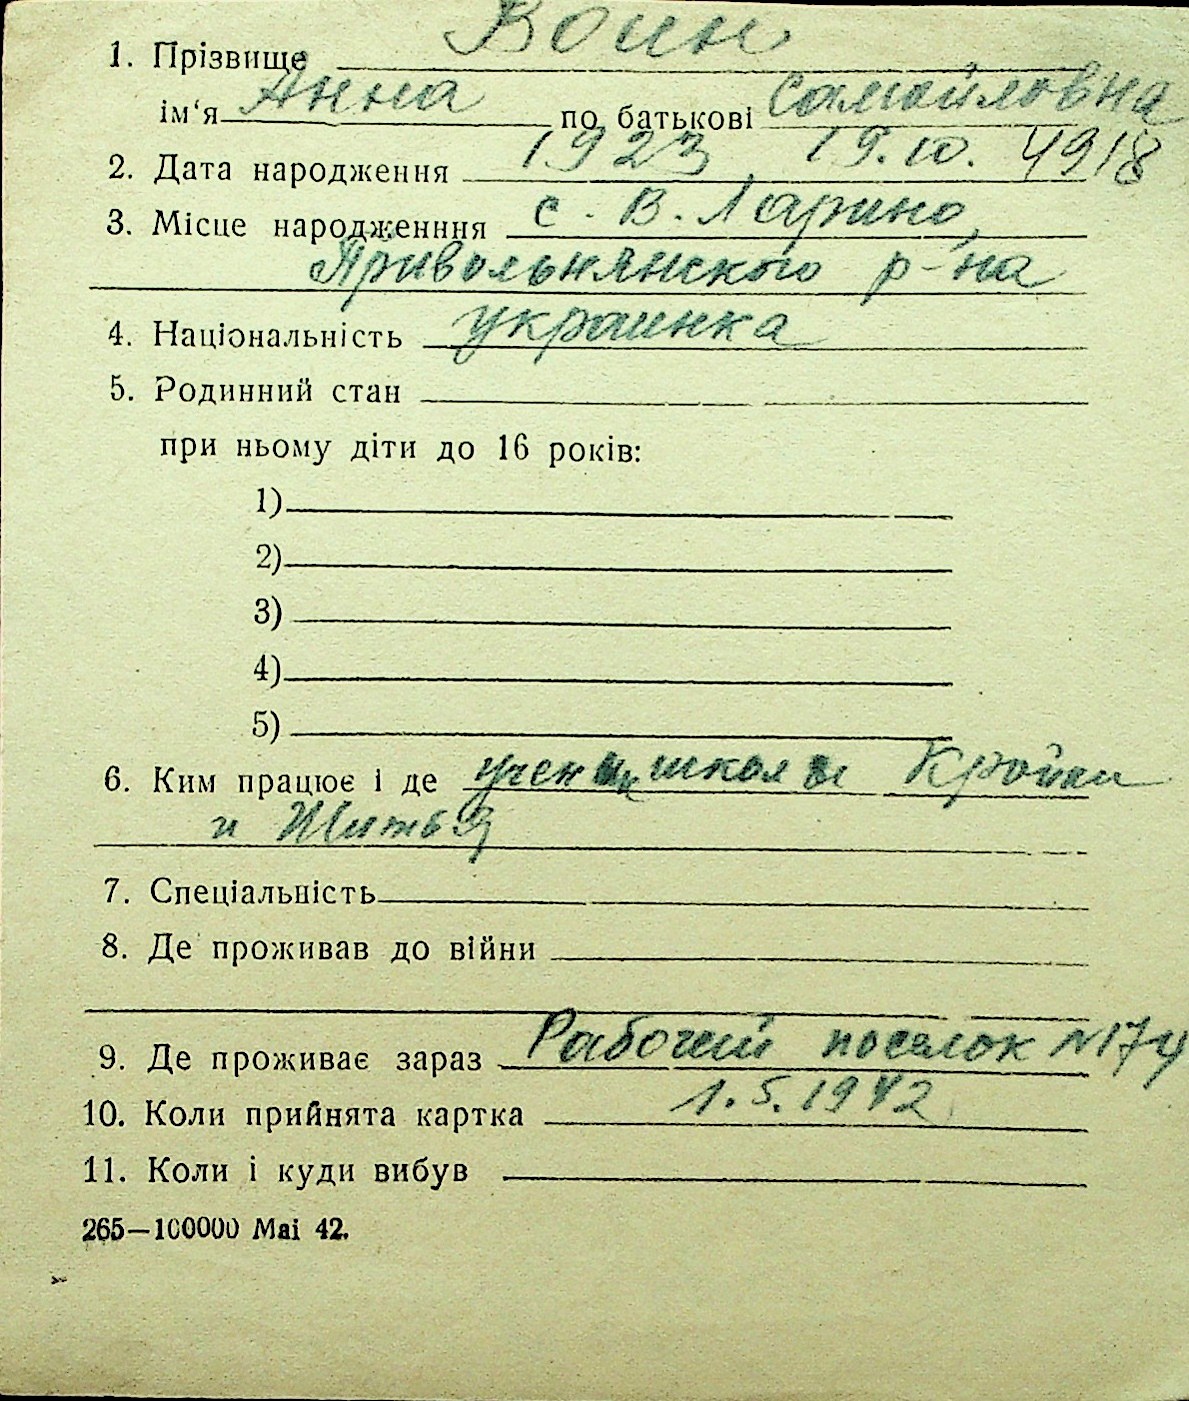 1. Прізвище Воин
ім‘я Анна по батькові Самойловна
2. Дата народження 1923, 19.10. 4918
3. Місце народженння с. В. Ларино,
Привольнянского р-на
4. Національність украинка
5. Родинний стан
при ньому діти до 16 років:
1)
2)
3)
4)
5)
6. Ким працює і де школы Кройки
и Шитья
7. Спеціальність
8. Де проживав до війни
9. Де проживає зараз Рабочий поселок N174
10. Коли прийнята картка 1.5.1942
11. Коли і куди вибув
265—100000 Маі 42.